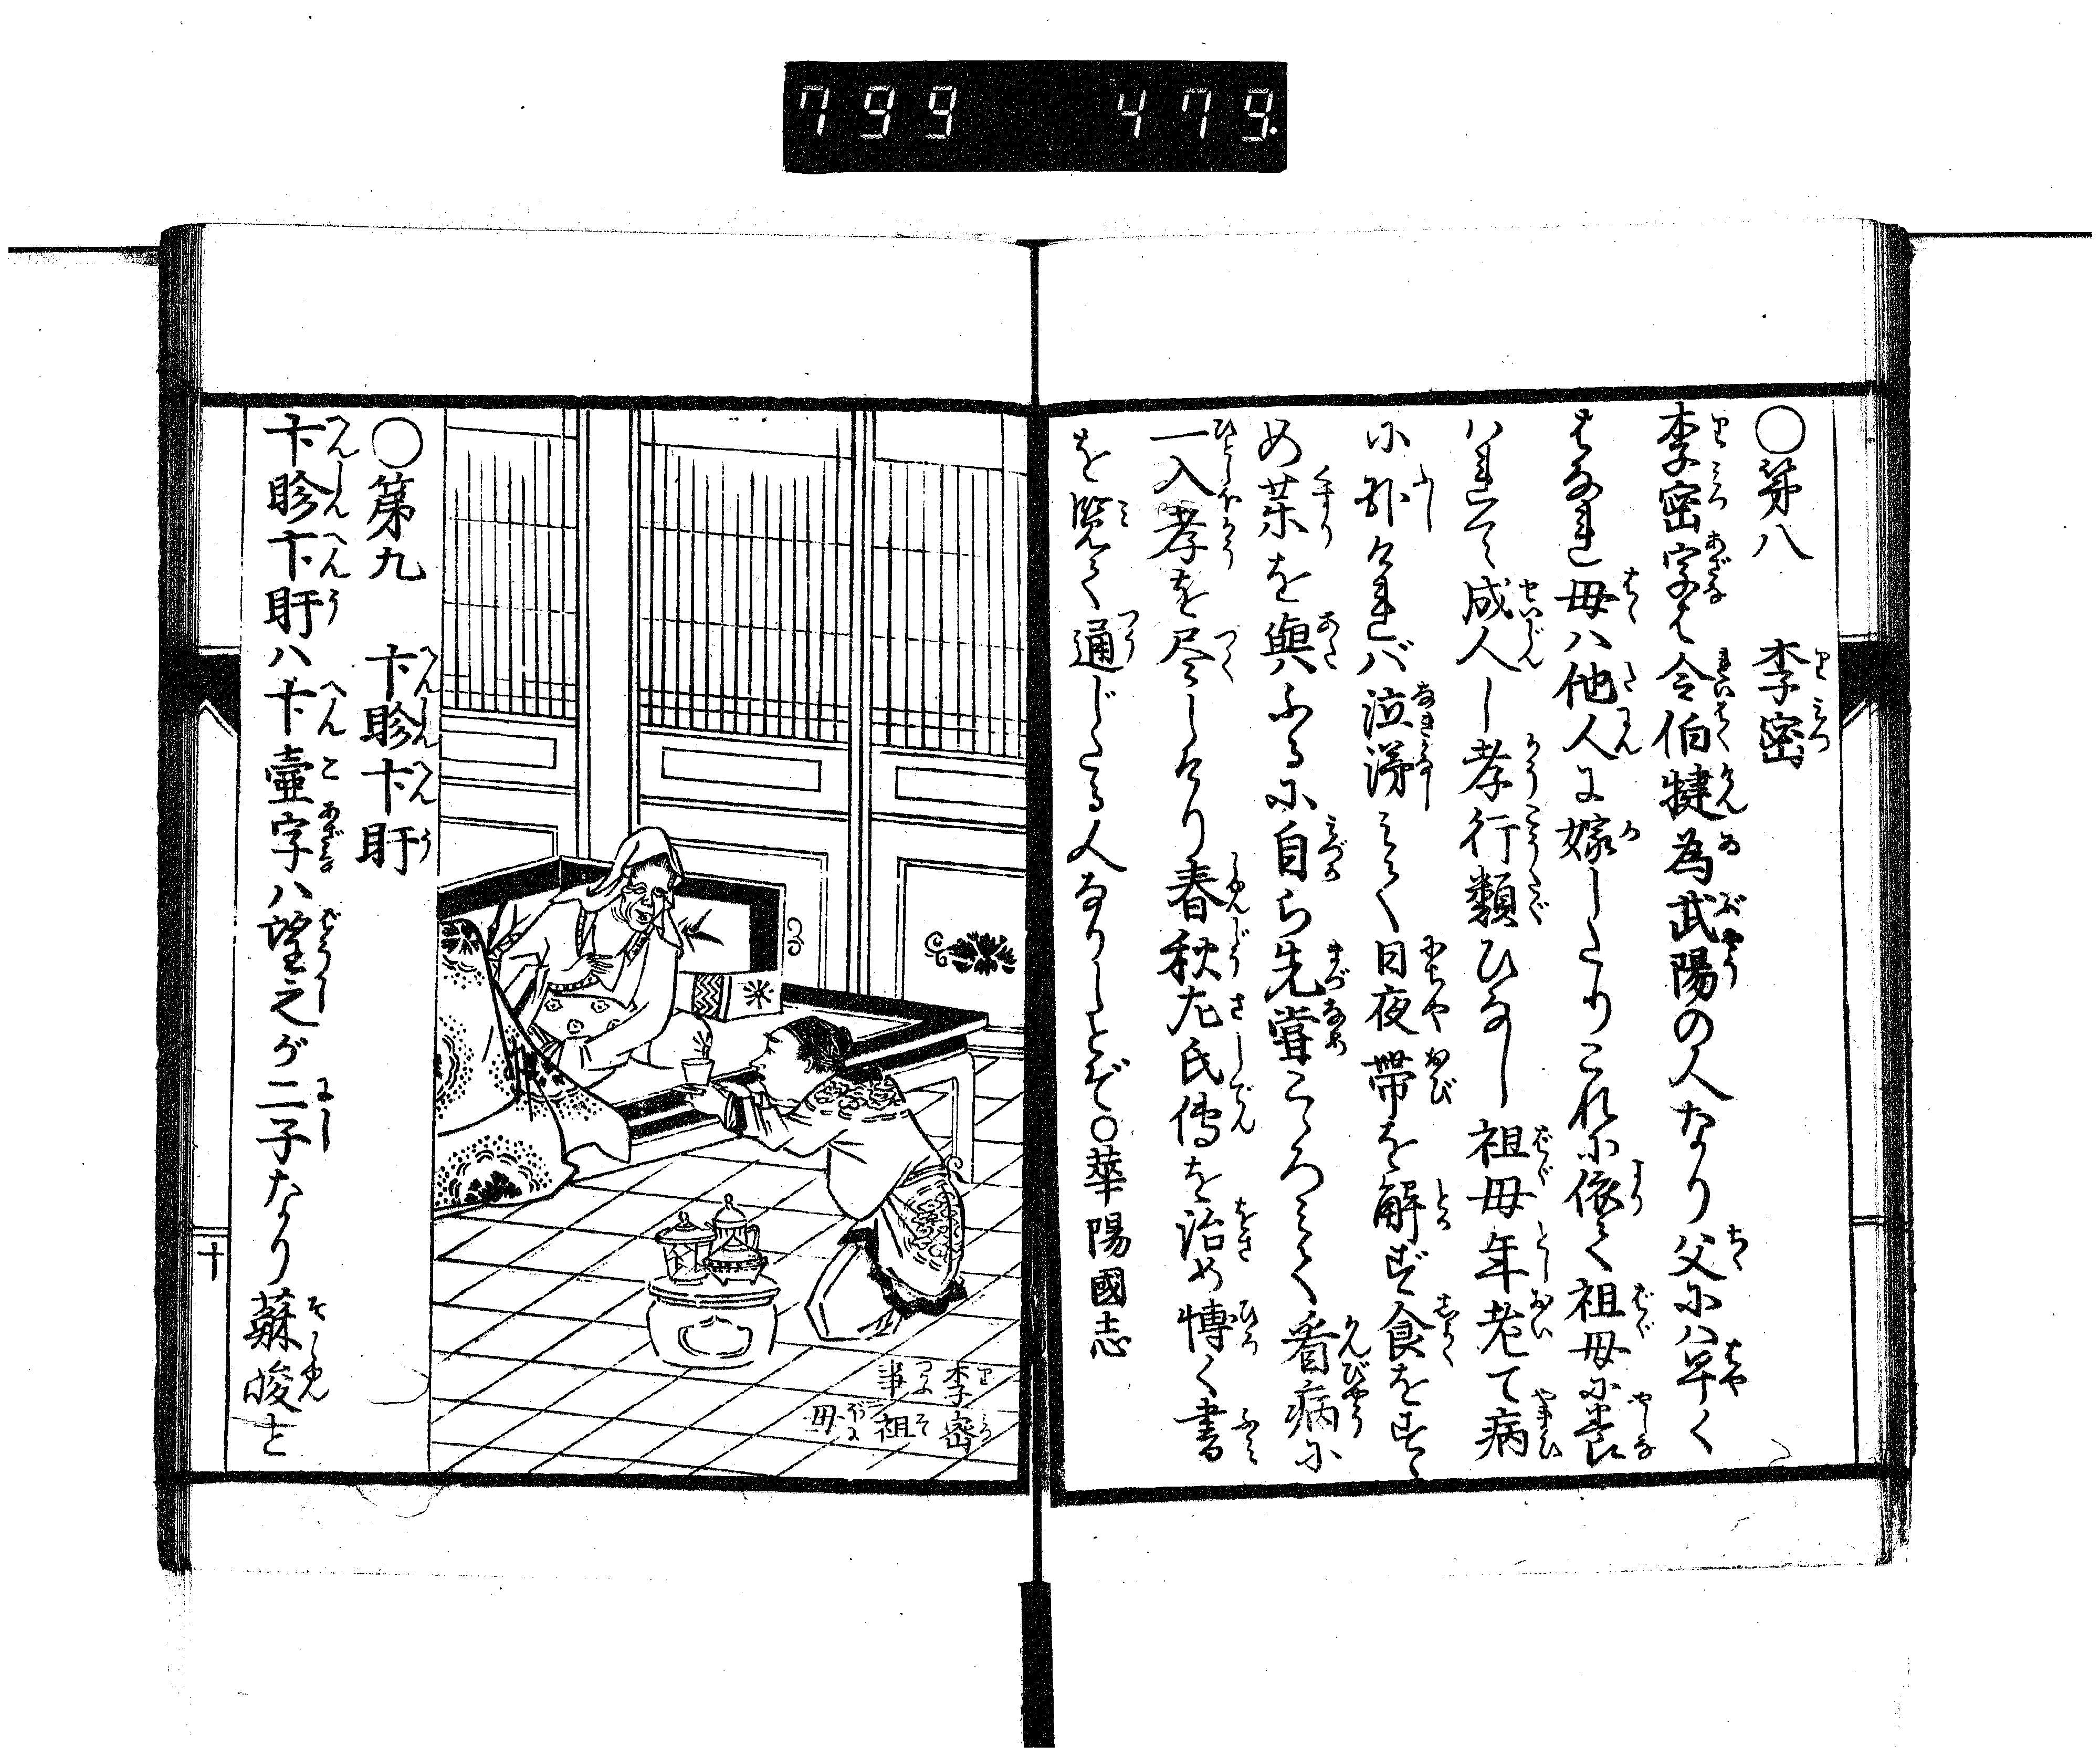 799 479.
○第八 李密
李密字は令伯犍為武陽の人なり父にハ早く
はなれ母ハ他人に嫁したりこれに依て祖母に養
ハれて成人し孝行類ひなし祖母年老て病
に臥けれバ泣涕して日夜帯を解ず食をすゝ
め薬を與ふるに自ら先甞こゝろミて看病に
一入孝を尽しけり春秋左氏傳を治め博く書
を覧て通じたる人なりしとぞ○華陽國志
李密
事祖
母
○第九 卞眕卞盱
卞眕卞盱ハ卞壷字ハ望之が二子なり蘇峻と
十